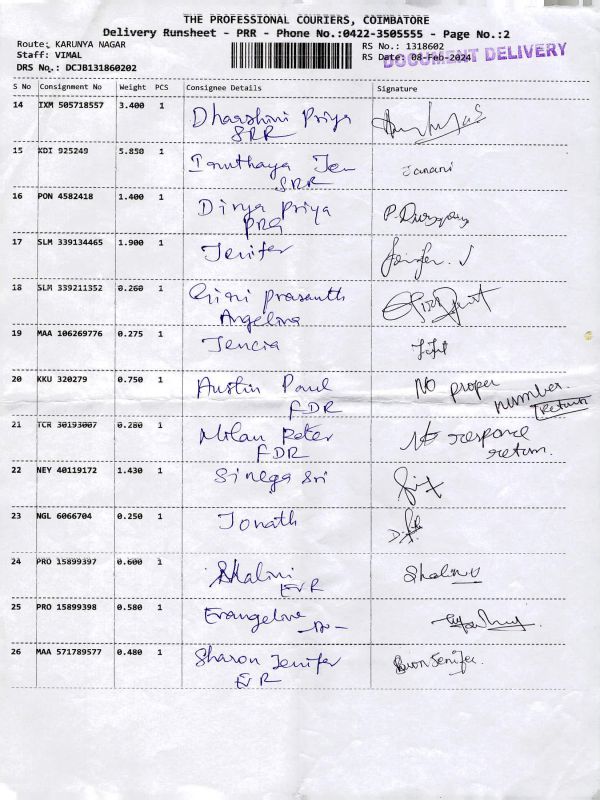 THE PROFESSIONAL COURIERS, COIMBATORE
Delivery Runsheet - PRR - Phone No.:0422-3505555 - Page No.:2
Route: KARUNYA NAGAR
RS No.: 1318602
Staff: VIMAL
RS Date: 08-Feb-2024
DOCUMENT DELIVERY
DRS No.: DCJB131860202
S No Consignment No Weight PCS Consignee Details Signature
14 IXM 505718557 3.400 1 Dharshini Priya
SRR
15 KDI 925249 5.850 1 Iruthaya Jen Janani
SRR
16 PON 4582418 1.400 1 Divya Priya
PRG
17 SLM 339134465 1.900 1 Jenifer Jenifer. ✓
18 SLM 339211352 0.260 1 Giri Prasanth
Angelina
19 MAA 106269776 0.275 1 Jencia
20 KKU 320279 0.750 1 Austin Paul No proper
FDR number.
return
21 TCR 30193007 0.280 1 Milan Peter No response
FDR return.
22 NEY 40119172 1.430 1 Sinega Sri
23 NGL 6066704 0.250 1 Jonath
24 PRO 15899397 0.600 1 Shalini Shalini
EVR
25 PRO 15899398 0.580 1 Evangeline
26 MAA 571789577 0.480 1 Sharon Jenifer
EVR